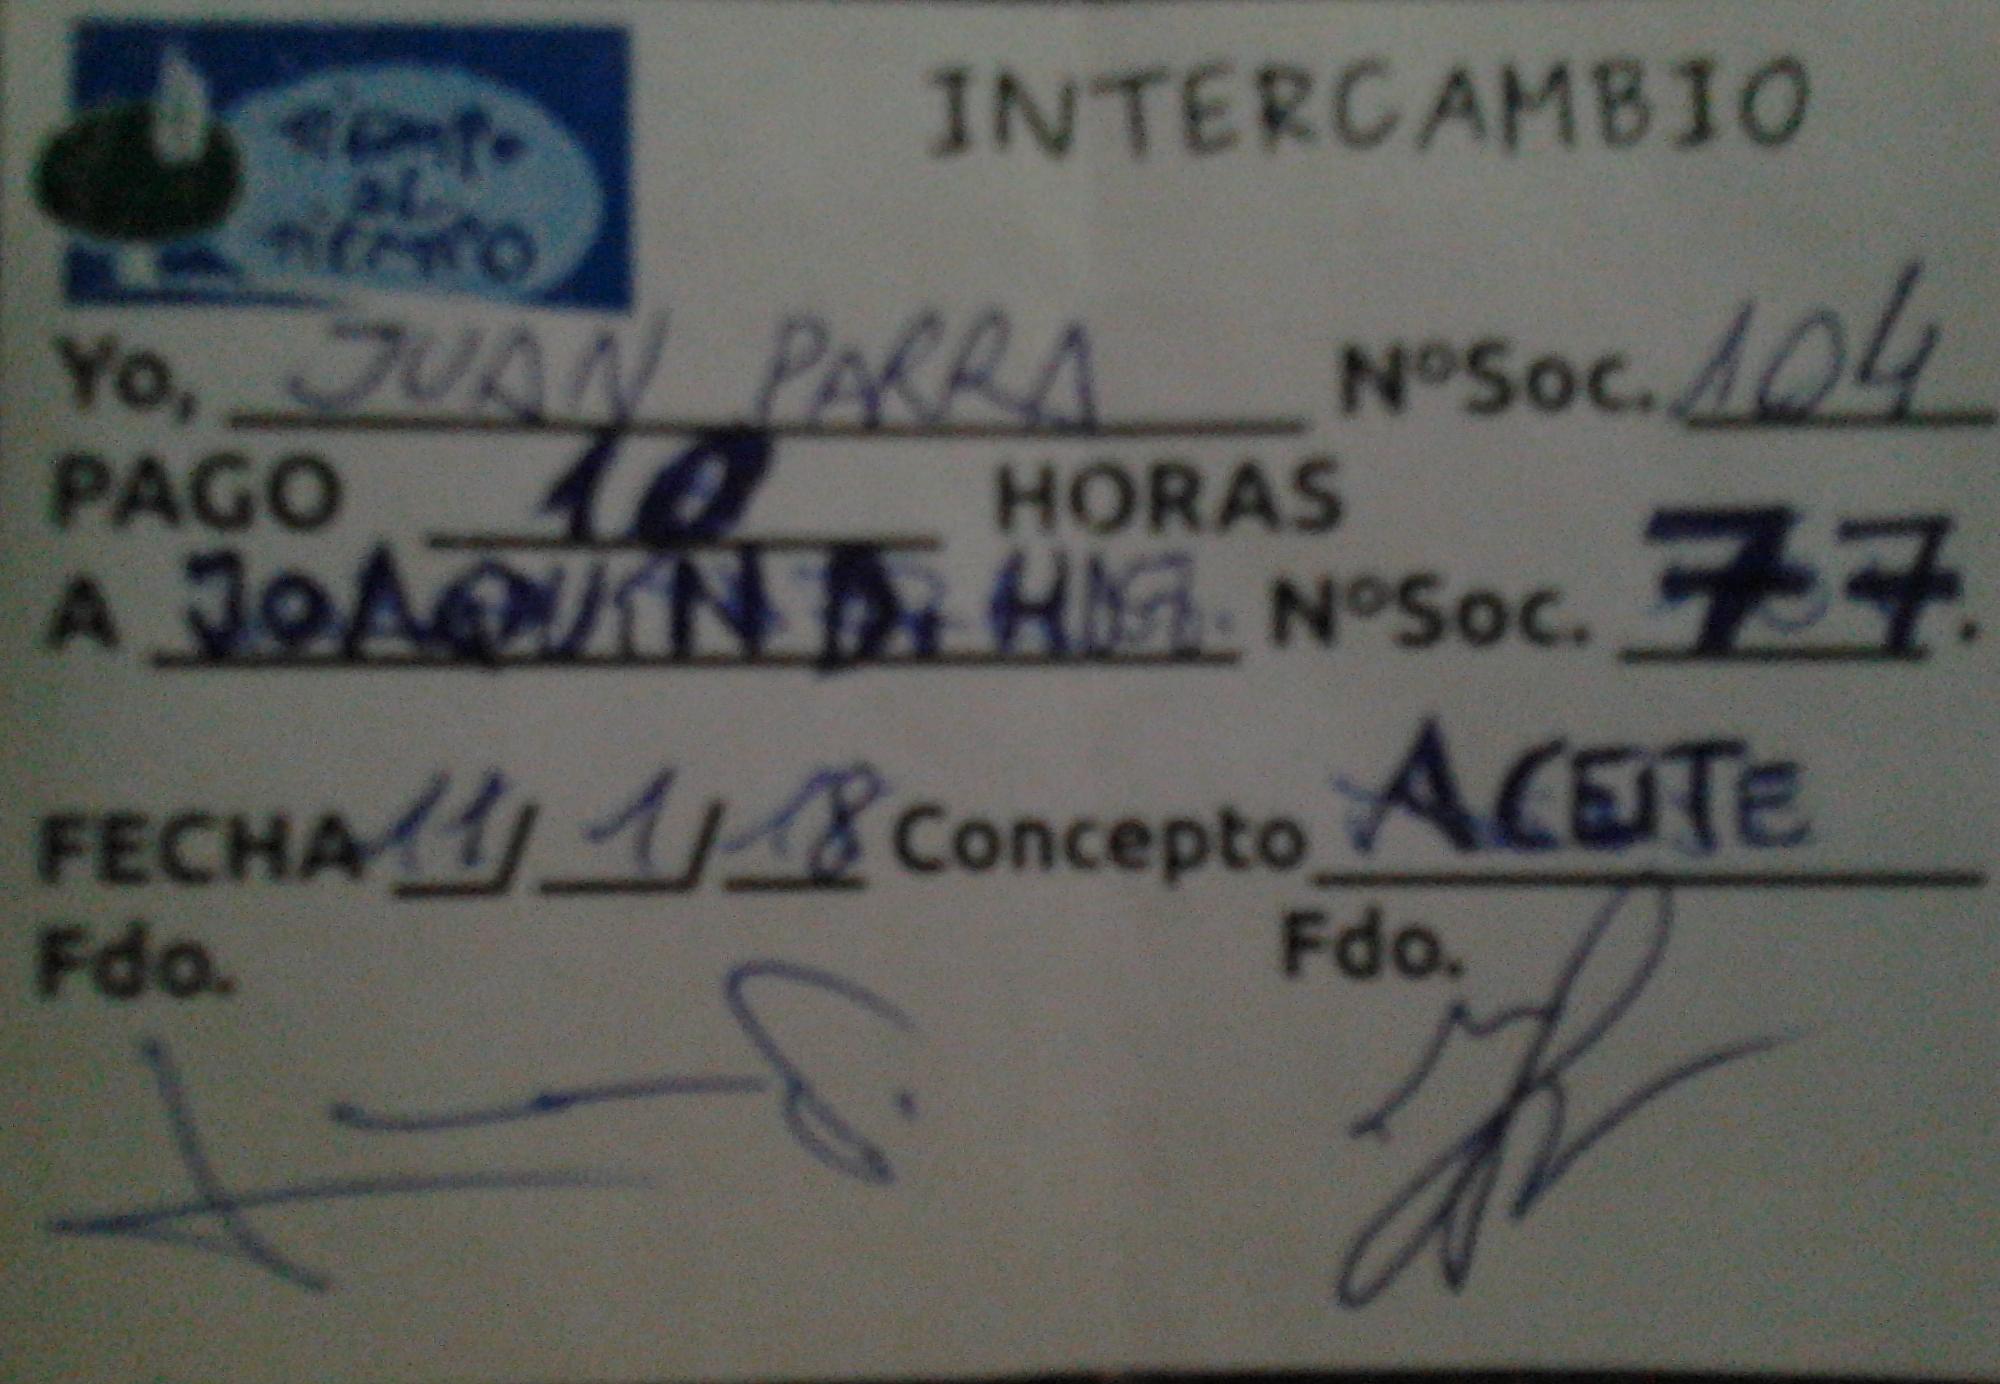 TIEMPO
AL
TIEMPO
INTERCAMBIO
Yo, JUAN PARRA NºSoc. 104
PAGO 10 HORAS
A JOAQUIN D. H NºSoc. 77.
FECHA 11/1/18 Concepto ACEITE
Fdo. Fdo.